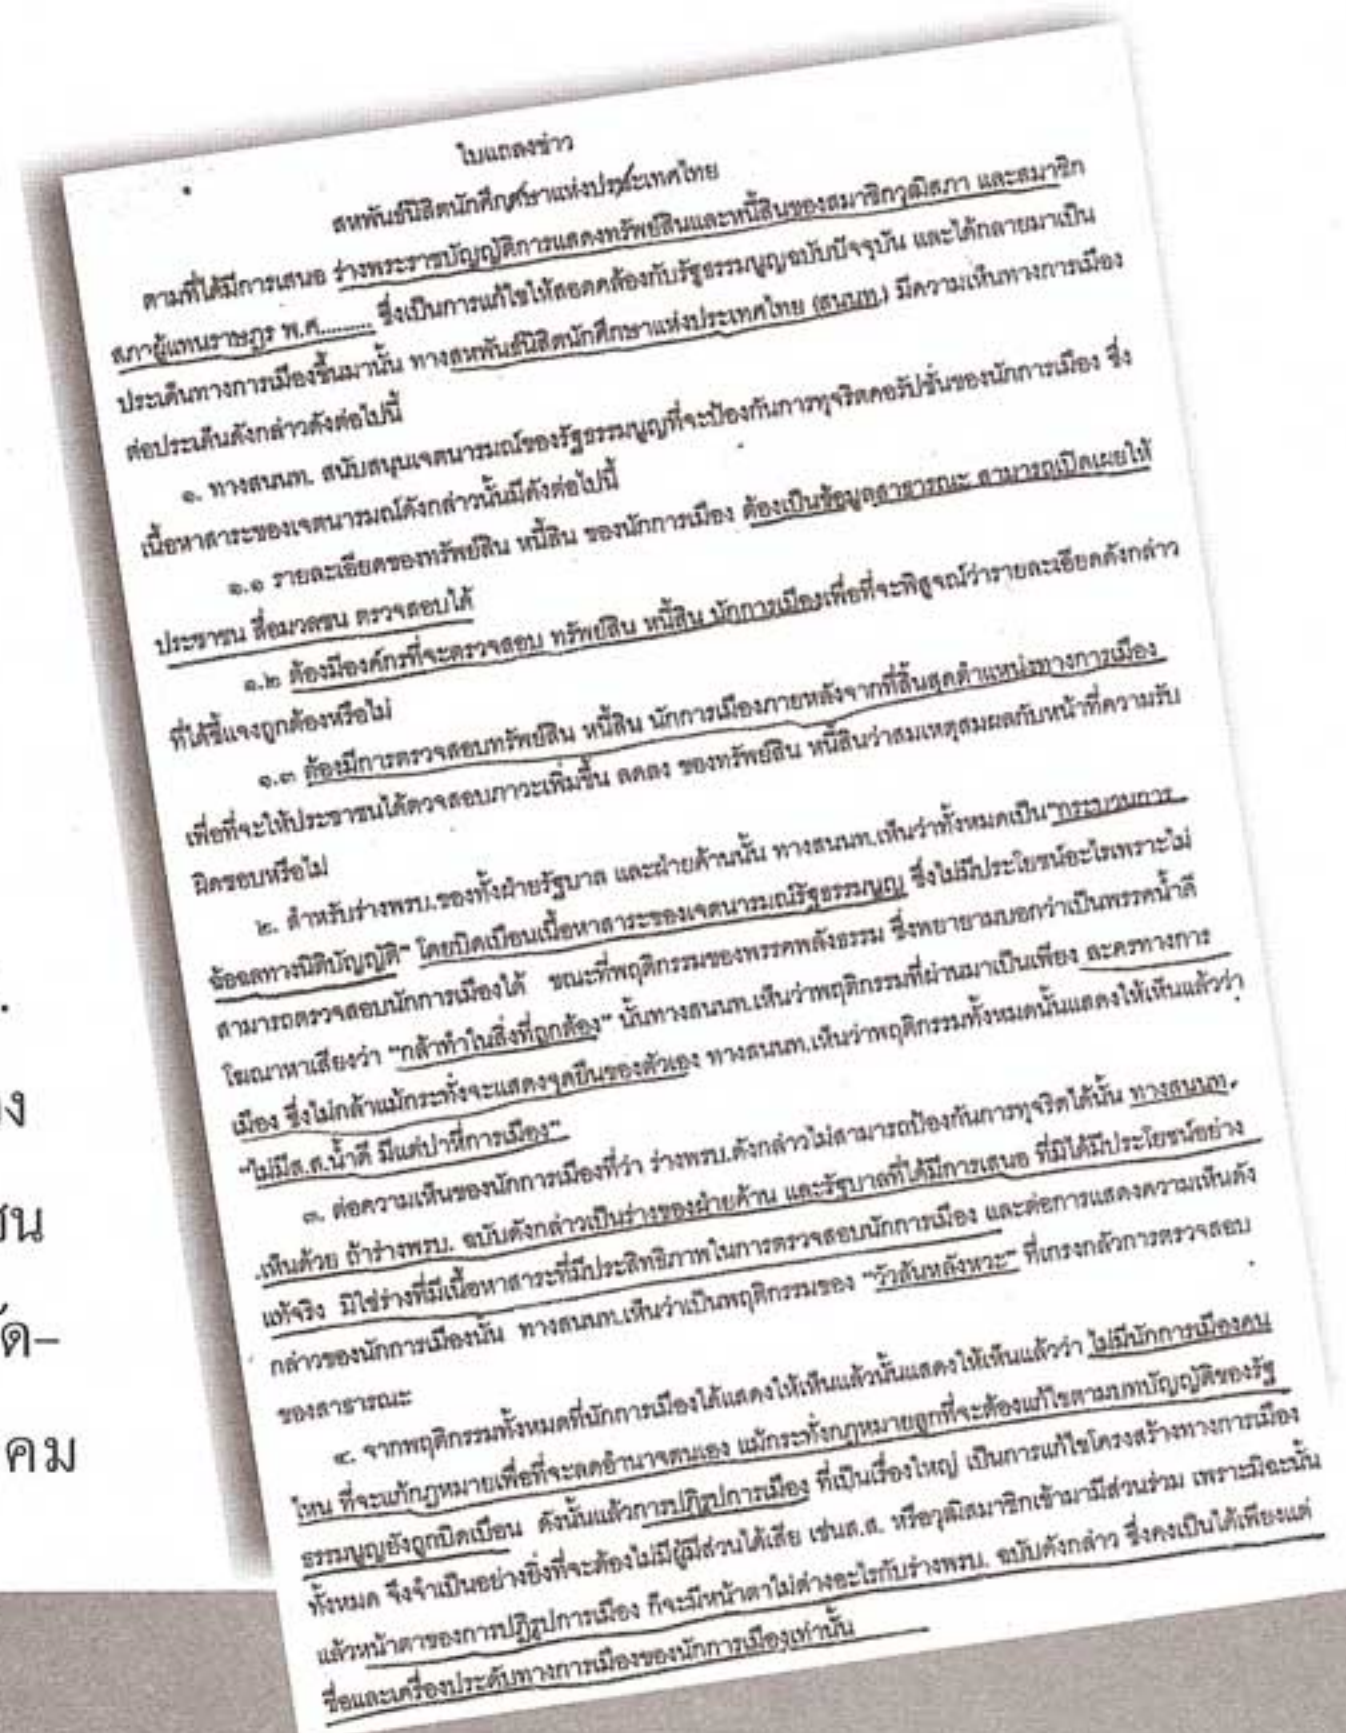 ใบแถลงข่าว
สหพันธ์นิสิตนักศึกษาแห่งประเทศไทย
ตามที่ได้มีการเสนอ ร่างพระราชบัญญัติการแสดงทรัพย์สินและหนี้สินของสมาชิกวุฒิสภา และสมาชิก
สภาผู้แทนราษฎร พ.ศ......... ซึ่งเป็นการแก้ไขให้สอดคล้องกับรัฐธรรมนูญฉบับปัจจุบัน และได้กลายมาเป็น
ประเด็นทางการเมืองขึ้นมานั้น ทางสหพันธ์นิสิตนักศึกษาแห่งประเทศไทย (สนนท.) มีความเห็นทางการเมือง
ต่อประเด็นดังกล่าวดังต่อไปนี้
๑. ทางสนนท. สนับสนุนเจตนารมณ์ของรัฐธรรมนูญที่จะป้องกันการทุจริตคอรัปชั่นของนักการเมือง ซึ่ง
เนื้อหาสาระของเจตนารมณ์ดังกล่าวนั้นมีดังต่อไปนี้
๑.๑ รายละเอียดของทรัพย์สิน หนี้สิน ของนักการเมือง ต้องเป็นข้อมูลสาธารณะ สามารถเปิดเผยให้
ประชาชน สื่อมวลชน ตรวจสอบได้
๑.๒ ต้องมีองค์กรที่จะตรวจสอบ ทรัพย์สิน หนี้สิน นักการเมืองเพื่อที่จะพิสูจณ์ว่ารายละเอียดดังกล่าว
ที่ได้ชี้แจงถูกต้องหรือไม่
๑.๓ ต้องมีการตรวจสอบทรัพย์สิน หนี้สิน นักการเมืองภายหลังจากที่สิ้นสุดตำแหน่งทางการเมือง
เพื่อที่จะให้ประชาชนได้ตวจสอบภาวะเพิ่มขึ้น ลดลง ของทรัพย์สิน หนี้สินว่าสมเหตุสมผลกับหน้าที่ความรับ
ผิดชอบหรือไม่
๒. สำหรับร่างพรบ.ของทั้งฝ่ายรัฐบาล และฝ่ายค้านนั้น ทางสนนท.เห็นว่าทั้งหมดเป็น"กระบวนการ
ฉ้อฉลทางนิติบัญญัติ" โดยบิดเบือนเนื้อหาสาระของเจตนารมณ์รัฐธรรมนูญ ซึ่งไม่มีประโยชน์อะไรเพราะไม่
สามารถตรวจสอบนักการเมืองได้ ขณะที่พฤติกรรมของพรรคพลังธรรม ซึ่งพยายามบอกว่าเป็นพรรคน้ำดี
โฆณาหาเสียงว่า "กล้าทำในสิ่งที่ถูกต้อง" นั้นทางสนนท.เห็นว่าพฤติกรรมที่ผ่านมาเป็นเพียง ละครทางการ
เมือง ซึ่งไม่กล้าแม้กระทั่งจะแสดงจุดยืนของตัวเอง ทางสนนท.เห็นว่าพฤติกรรมทั้งหมดนั้นแสดงให้เห็นแล้วว่า
"ไม่มีส.ส.น้ำดี มีแต่ปาหี่การเมือง"
๓. ต่อความเห็นของนักการเมืองที่ว่า ร่างพรบ.ดังกล่าวไม่สามารถป้องกันการทุจริตได้นั้น ทางสนนท.
เห็นด้วย ถ้าร่างพรบ. ฉบับดังกล่าวเป็นร่างของฝ่ายค้าน และรัฐบาลที่ได้มีการเสนอ ที่มิได้มีประโยชน์อย่าง
แท้จริง มิใช่ร่างที่มีเนื้อหาสาระที่มีประสิทธิภาพในการตรวจสอบนักการเมือง และต่อการแสดงความเห็นดัง
กล่าวของนักการเมืองนั้น ทางสนนท.เห็นว่าเป็นพฤติกรรมของ "วัวสันหลังหวะ" ที่เกรงกลัวการตรวจสอบ
ของสาธารณะ
๔. จากพฤติกรรมทั้งหมดที่นักการเมืองได้แสดงให้เห็นแล้วนั้นแสดงให้เห็นแล้วว่า ไม่มีนักการเมืองคน
ไหน ที่จะแก้กฎหมายเพื่อที่จะลดอำนาจตนเอง แม้กระทั่งกฎหมายลูกที่จะต้องแก้ไขตามบทบัญญัติของรัฐ
ธรรมนูญยังถูกบิดเบือน ดังนั้นแล้วการปฏิรูปการเมือง ที่เป็นเรื่องใหญ่ เป็นการแก้ไขโครงสร้างทางการเมือง
ทั้งหมด จึงจำเป็นอย่างยิ่งที่จะต้องไม่มีผู้มีส่วนได้เสีย เช่นส.ส. หรือวุฒิสมาชิกเข้ามามีส่วนร่วม เพราะมิฉะนั้น
แล้วหน้าตาของการปฏิรูปการเมือง ก็จะมีหน้าตาไม่ต่างอะไรกับร่างพรบ. ฉบับดังกล่าว ซึ่งคงเป็นได้เพียงแค่
ชื่อและเครื่องประดับทางการเมืองของนักการเมืองเท่านั้น
คม